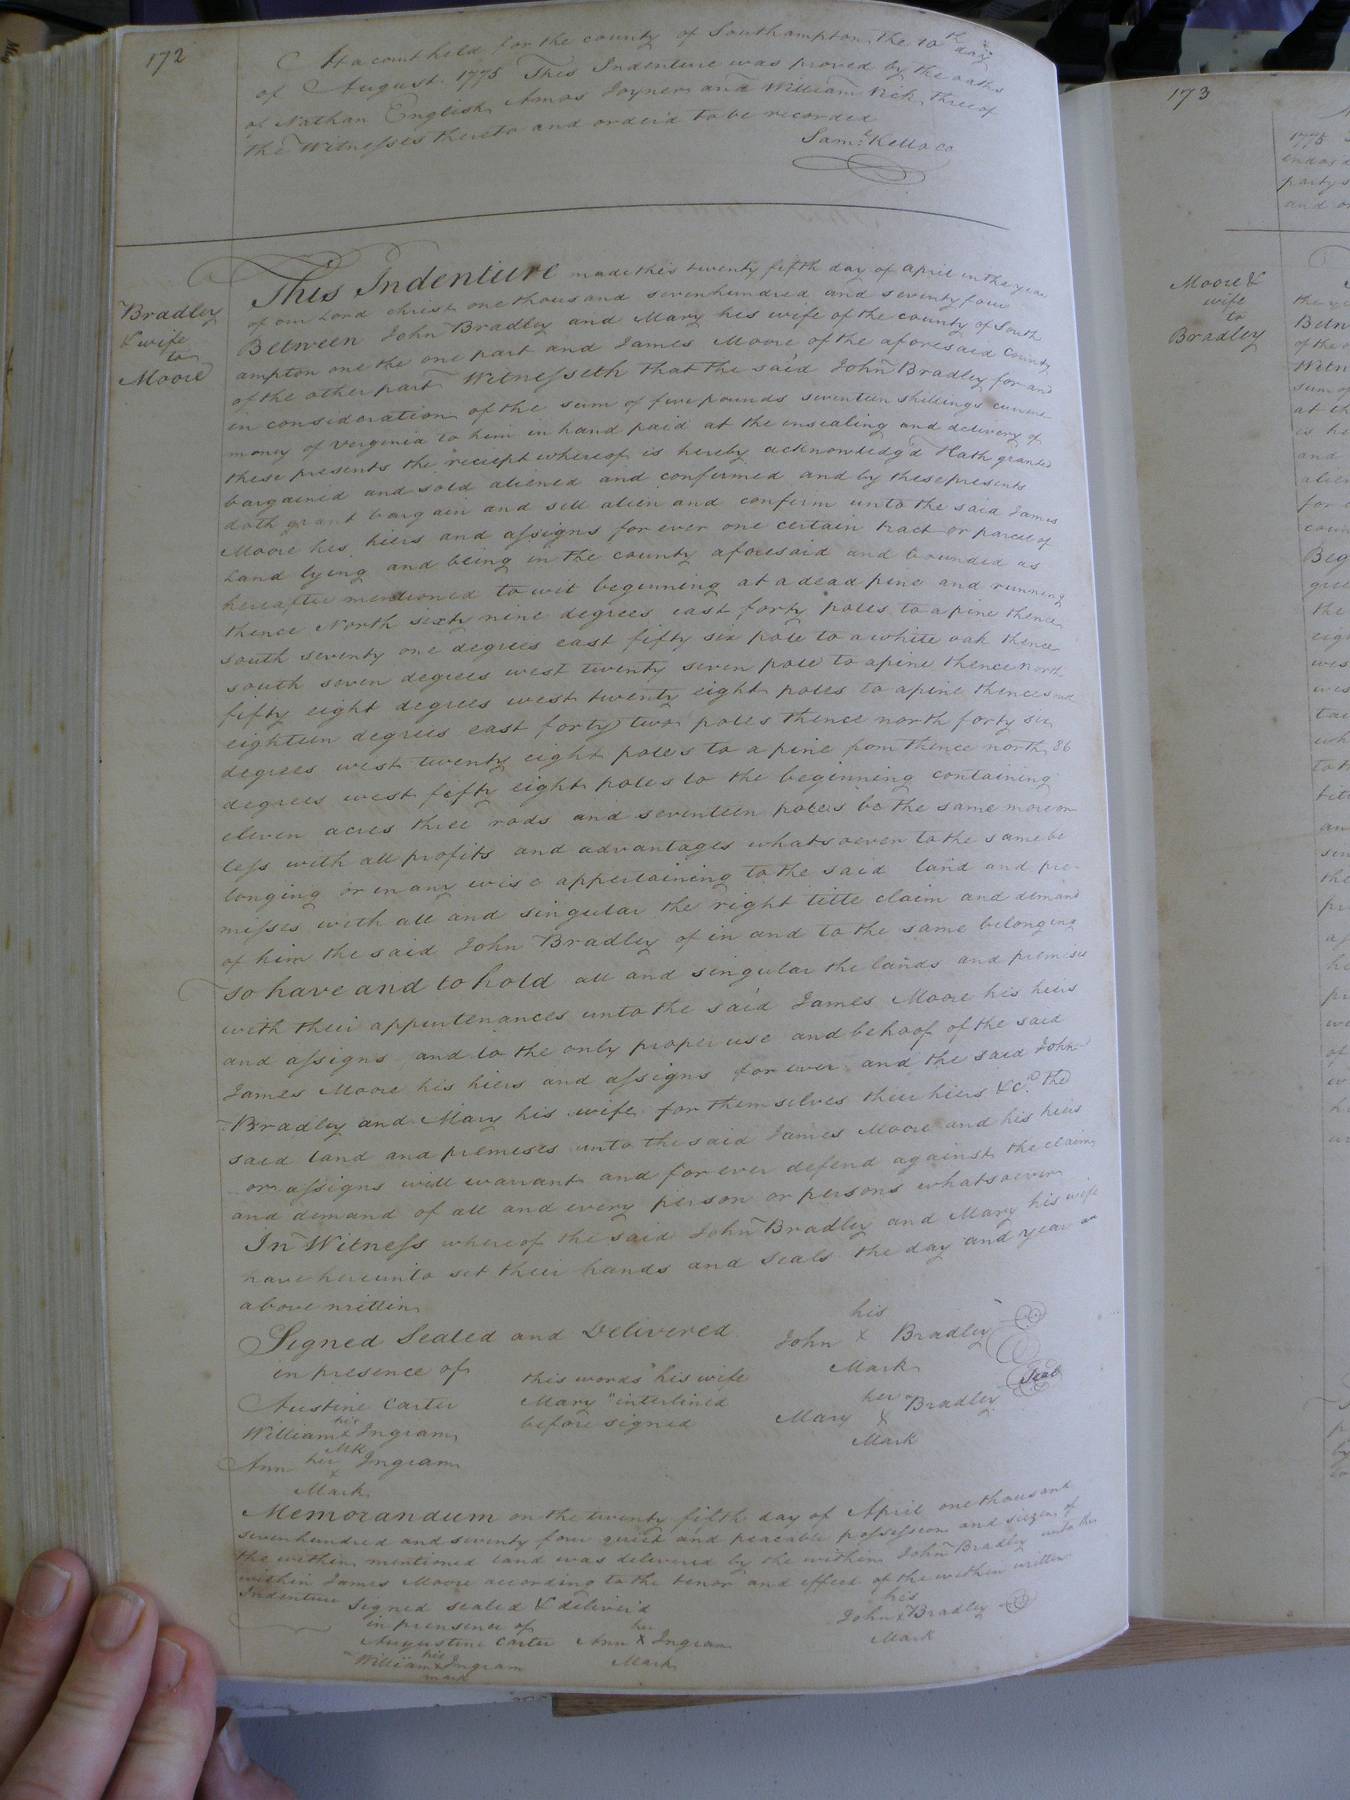 172
At a court held for the county of Southampton the 10th day
of August 1775 This Indenture was proved by the oaths
of Nathan English Amos Joyner and William Vick three of
the Witnesses thereto and ordeid to be recorded
Saml: Kello cc
Bradley
& wife
to
Moore
This Indenture made this twenty fifth day of april in the year
of our Lord christ one thousand seven hundred and seventy four
Between John Bradley and Mary his wife of the county of South
ampton one the one part and James Moore of the aforesaid County
of the other part Witnesseth that the said John Bradley for and
in consideration of the sum of five pounds seventeen shillings current
money of verginia to him in hand paid at the ensealing and delivery of
these presents the reciept whereof is hereby acknowledg'd Hath granted
bargained and sold aliened and confirmed and by these presents
doth grant bargain and sell alien and confirm unto the said James
Moore his hiers and assigns for ever one certain tract or parcel of
Land lying and being in the county aforesaid and bounded as
hereafter mentioned to wit beginning at a dead pine and running
thence North sixty nine degrees east forty poles to a pine thence
south seventy one degrees east fifty six pole to a white oak thence
south seven degrees west twenty seven pole to a pine thence north
fifty eight degrees west twenty eight poles to a pine thence
eighteen degrees east forty two poles thence north forty six
degrees west twenty eight poles to a pine from thence north 86
degrees west fifty eight poles to the beginning containing
eleven acres three rods and seventeen poles be the same more or
less with all profits and advantages whatsoever to the same be
longing or in any wise appertaining to the said land and pre-
misses with all and singular the right title claim and demand
of him the said John Bradley of in and to the same belonging
so have and to hold all and singular the lands and premises
with their appurtenances unto the said James Moore his heirs
and assigns and to the only proper use and behoof of the said
James Moore his hiers and assigns for ever and the said John
Bradley and Mary his wife for themselves their hiers &c. the
said land and premises unto the said James Moore and his heirs
or assigns will warrant and for ever defend against the claim
and demand of all and every person or persons whatsoever
In Witness whereof the said John Bradley and Mary his wife
have hereunto set their hands and seals the day and year as
above written
Signed Sealed and Delivered
in presence of
Austine Carter
his
William x Ingram
Mk
Ann her Ingram
x
Mark
this words "his wife
Mary" interlined
before signed
his
John x Bradley
Mark
Seal
her
Mary x Bradley
Mark
Memorandum on the twenty fifth day of April one thousand
seven hundred and seventy four quiet and peacable possession and siezen of
the within mentioned land was delivered by the within John Bradley unto the
within James Moore according to the tenor and effect of the within written
Indenture Signed sealed & deliver'd
in prensence of
Augustine Carter
her
Ann x Ingram
Mark
his
William x Ingram
mark
his
John x Bradley
Mark
173
1775
party
and
Moore &
wife
to
Bradley
Betw
of the
Witn
sum of
at th
is he
and
alien
for
coun
Beg
the